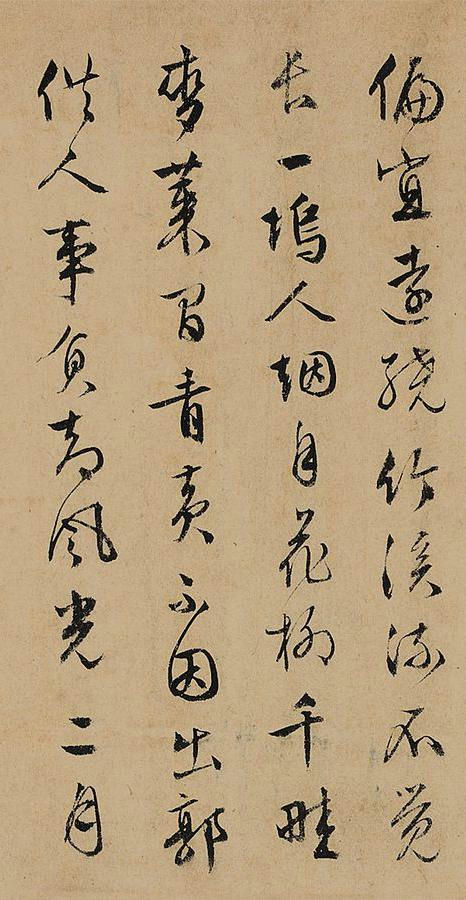 偏宜遠繞竹溪流不覺
長一塢人烟自花柳千畦
麥菜間青黃不因出郭
供人事負却風光二月